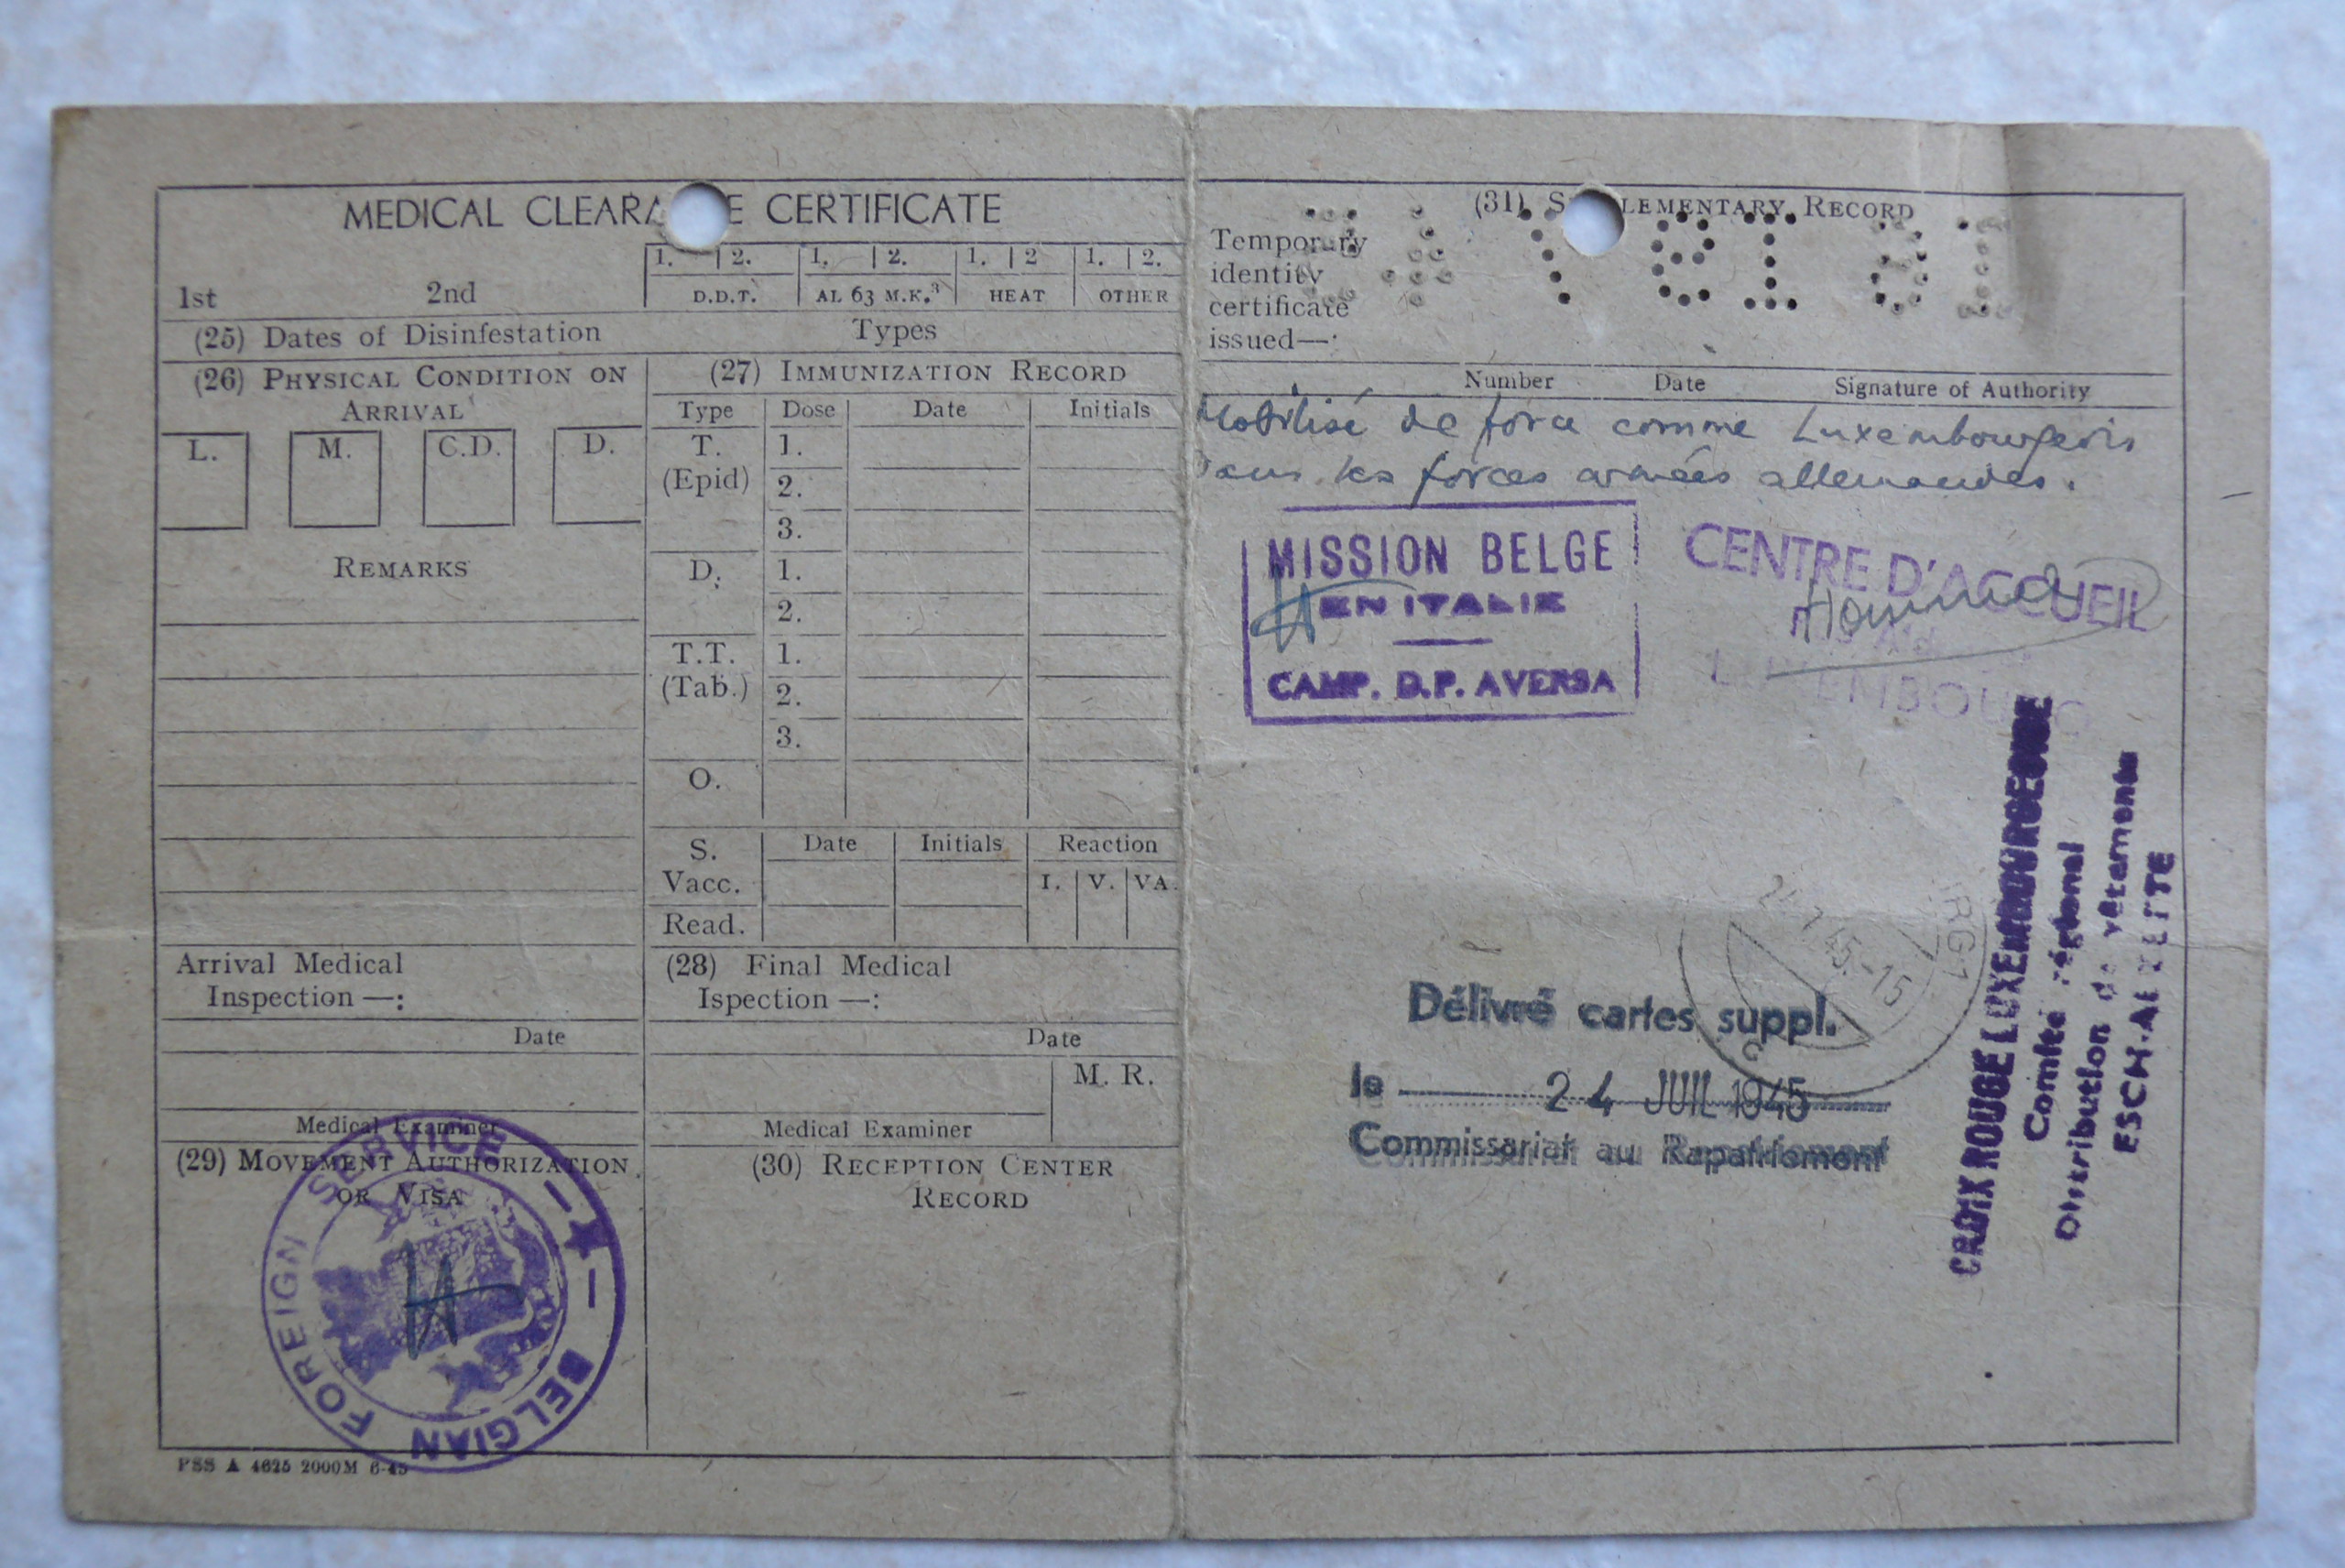 MEDICAL CLEARA E CERTIFICATE
1. 2. 1. 2. 1. 2 1. 2.
1st 2nd D.D.T. AL 63 M.K.3 HEAT OTHER
(25) Dates of Disinfestation Types
(26) PHYSICAL CONDITION ON
ARRIVAL
L. M. C.D. D.
REMARKS
Arrival Medical
Inspection —:
Date
Medical Examiner
(29) MOVEMENT AUTHORIZATION
OR VISA
BELGIAN FOREIGN SERVICE
PSS A 4625 2000M 6-45
(27) IMMUNIZATION RECORD
Type Dose Date Initials
T. 1.
(Epid) 2.
3.
D. 1.
2.
T.T. 1.
(Tab.) 2.
3.
O.
S. Date Initials Reaction
Vacc. I. V. VA.
Read.
(28) Final Medical
Ispection —:
Date
M. R.
Medical Examiner
(30) RECEPTION CENTER
RECORD
(31) S LEMENTARY RECORD
Temporary
identity
certificate
issued—:
Number Date Signature of Authority
Mobilisé de force comme Luxembourgeois
dans les forces armées allemandes.
MISSION BELGE
EN ITALIE
CAMP. D.P. AVERSA
CENTRE D'ACCUEIL
LUXEMBOURG
24.7.45.-15
Délivré cartes suppl.
le 24 JUIL 1945
Commissariat au Rapatriement
CROIX ROUGE LUXEMBOURGEOISE
Comité régional
Distribution de vêtements
ESCH-ALZETTE